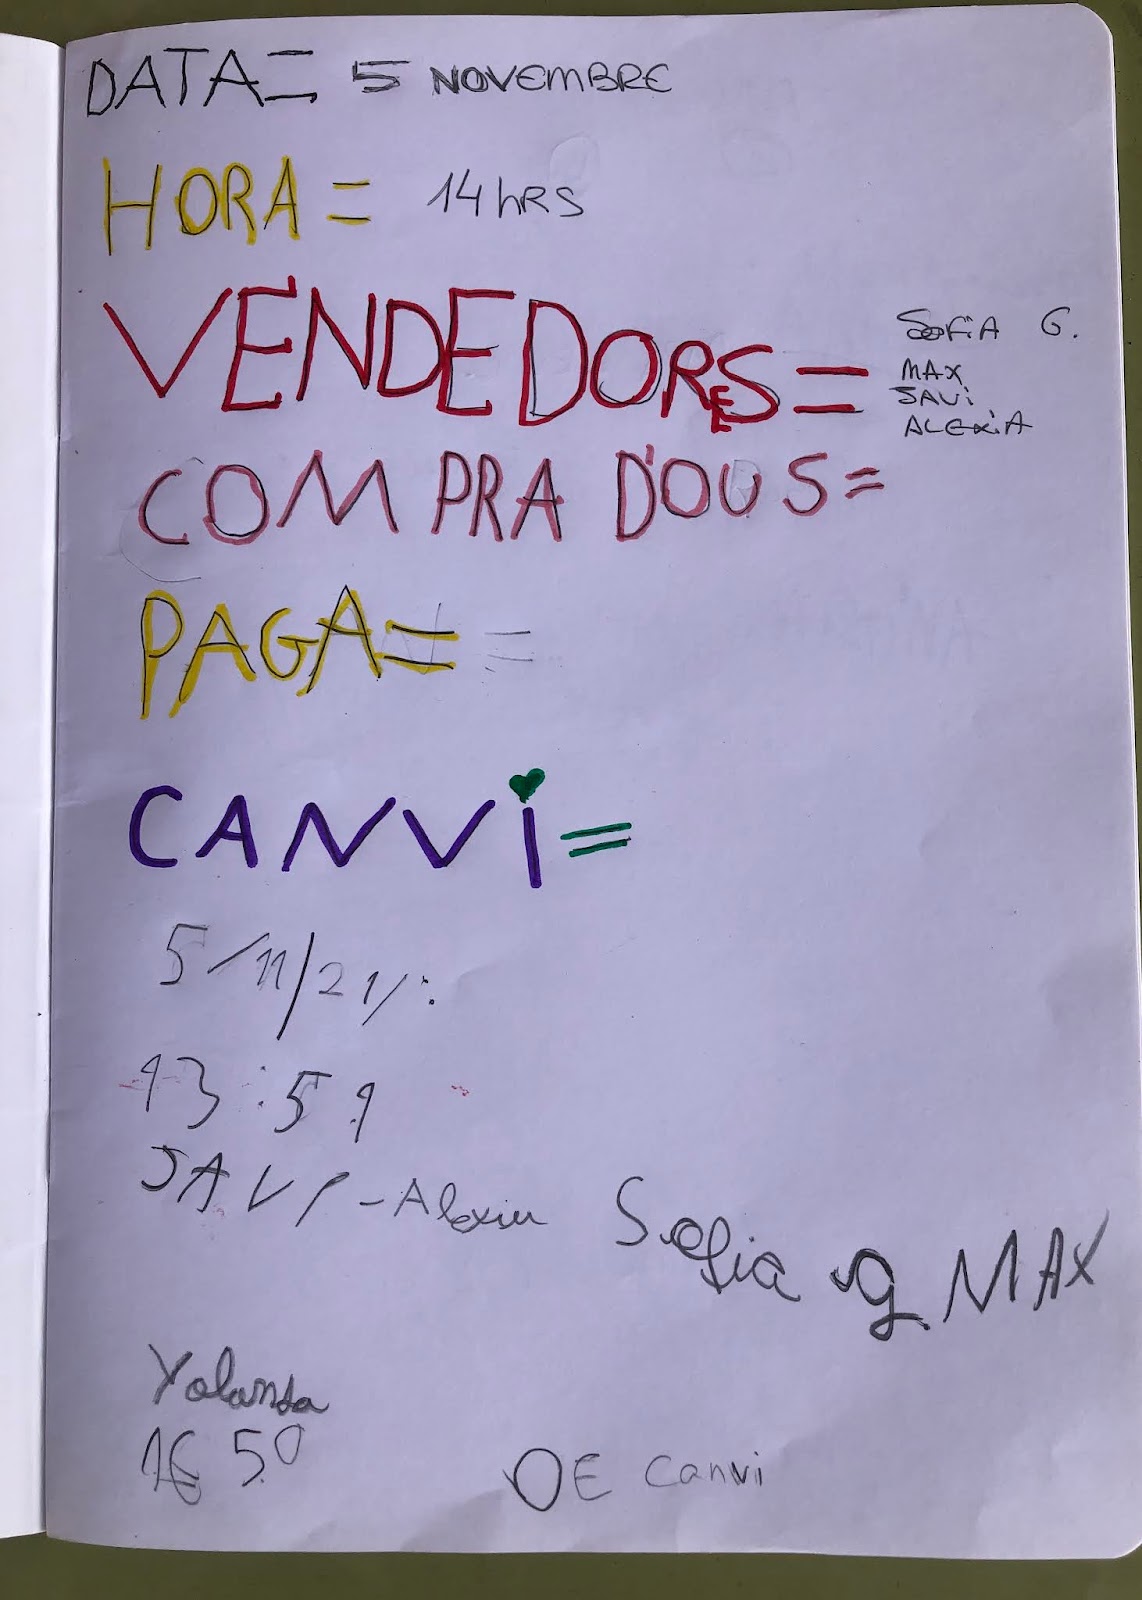 DATA= 5 NOVEMBRE
HORA= 14 hRS
VENDEDORES= SOFiA G.
MAX
JAVi
ALEXiA
COMPRA D'OUS=
PAGA= =
CANVi=
5/11/21/:
13:51
JAVI - Alexia Sofia g MAX
Yolanda
1€ 50
0E Canvi